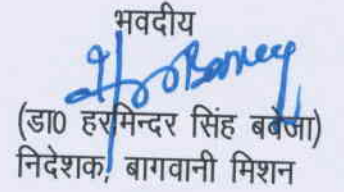 भवदीय
(डा0 हरमिन्दर सिंह बवेजा)
निदेशक, बागवानी मिशन